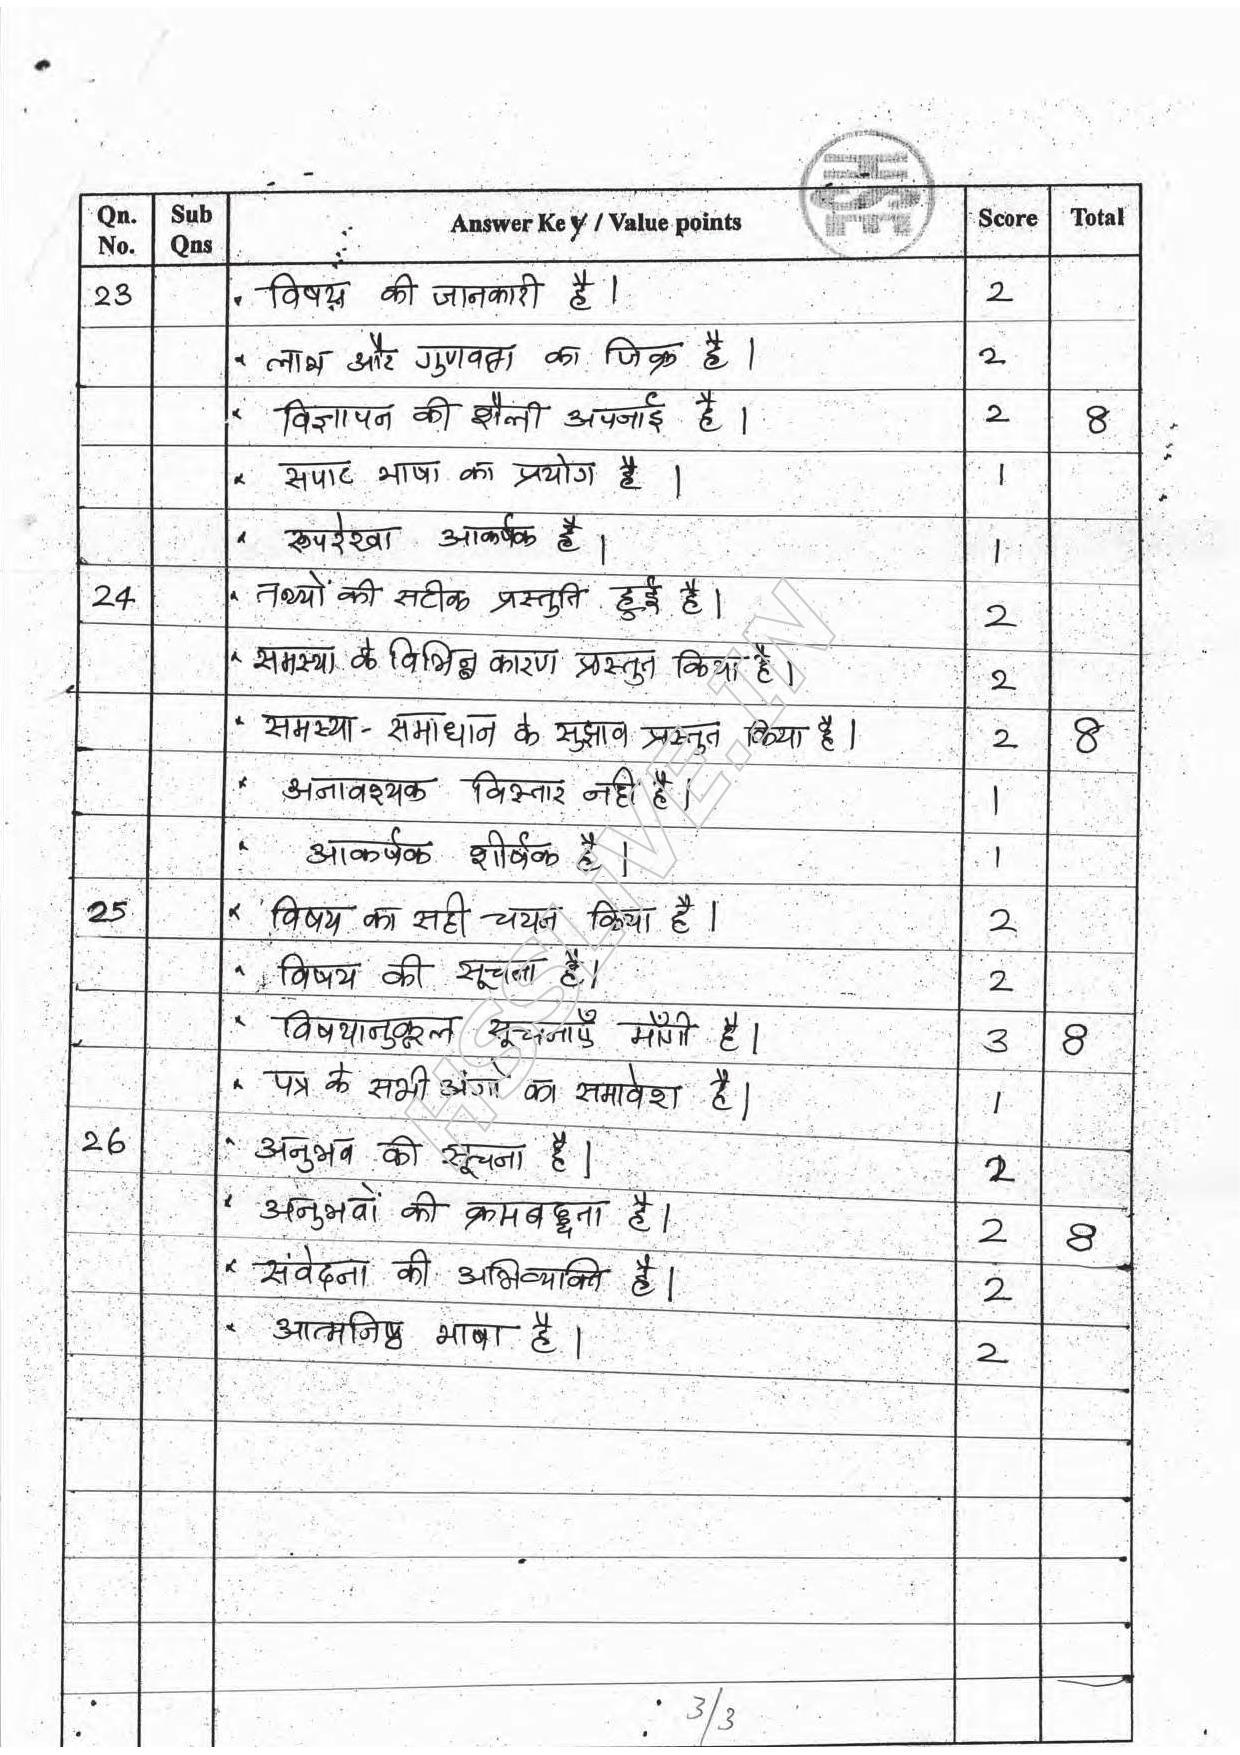 HSE
Qn. No. Sub Qns Answer Key / Value points Score Total
23 • विषय की जानकारी है । 2
× लाभ और गुणवत्ता का जिक्र है । 2
× विज्ञापन की शैली अपनाई है । 2 8
× सपाट भाषा का प्रयोग है । 1
× रूपरेखा आकर्षक है । 1
24 • तथ्यों की सटीक प्रस्तुति हुई है । 2
× समस्या के विभिन्न कारण प्रस्तुत किया है । 2
× समस्या - समाधान के सुझाव प्रस्तुत किया है । 2 8
× अनावश्यक विस्तार नहीं है । 1
• आकर्षक शीर्षक है । 1
25 × विषय का सही चयन किया है । 2
× विषय की सूचना है । 2
× विषयानुकूल सूचनाएँ माँगी है । 3 8
× पत्र के सभी अंगों का समावेश है । 1
26 • अनुभव की सूचना है । 2
× अनुभवों की क्रमबद्धता है । 2 8
× संवेदना की अभिव्यक्ति है । 2
× आत्मनिष्ठ भाषा है । 2
HSSLIVE.IN
3/3